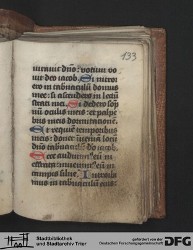 133
iuravit dño: votum vo
vit deo iacob. Si introi
ero in tabernaculū domus
mee: si ascendero in lectū
strati mei. Si dedero sop
nū oculis meis: et palpe
bris meis dormitationē.
Et requiē temporibus
meis: donec inveniā locū
dño tabernaculū deo iacob.
Ecce audivim⁹ eū in
effrata: invenim⁹ eū in
campis silve. Introibi
mus in tabernaculū eius
Stadtbibliothek
und Stadtarchiv Trier
gefördert von der
Deutschen Forschungsgemeinschaft
DFG